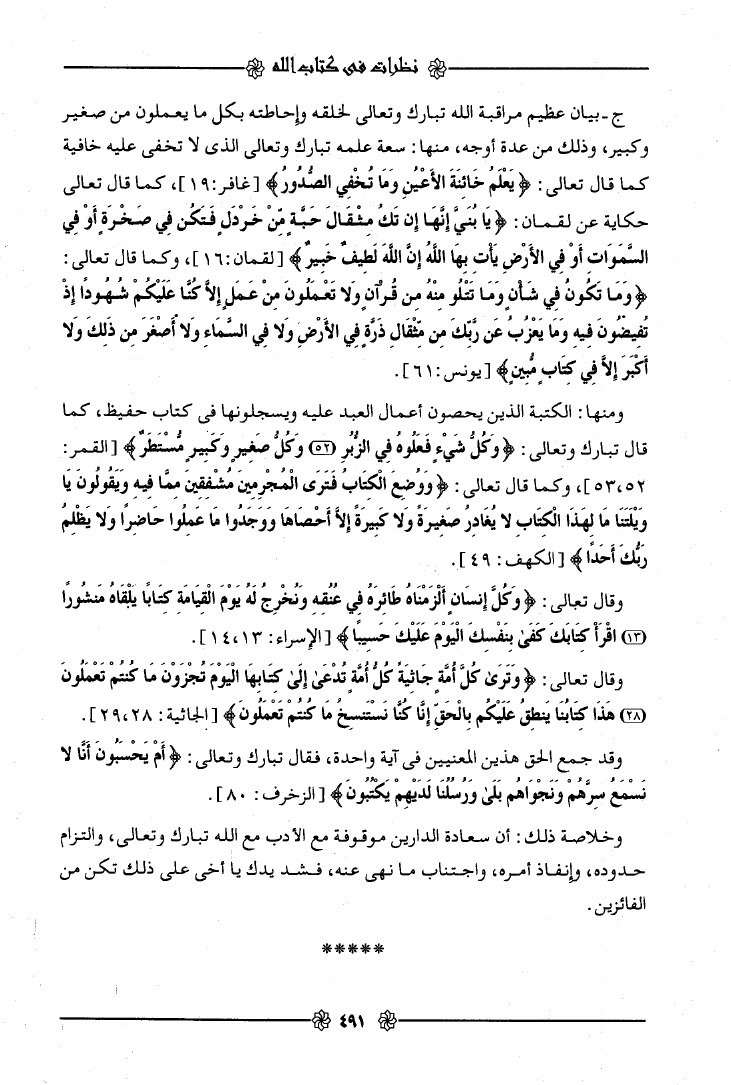 نظرات في كتاب الله
ج - بيان عظيم مراقبة الله تبارك وتعالى لخلقه وإحاطته بكل ما يعملون من صغير
وكبير، وذلك من عدة أوجه، منها: سعة علمه تبارك وتعالى الذى لا تخفى عليه خافية
كما قال تعالى: ﴿يَعْلَمُ خَائِنَةَ الأَعْيُنِ وَمَا تُخْفِي الصُّدُورُ﴾ [غافر: ١٩]، كما قال تعالى
حكاية عن لقمان: ﴿يَا بُنَيَّ إِنَّهَا إِن تَكُ مِثْقَالَ حَبَّةٍ مِّنْ خَرْدَلٍ فَتَكُن فِي صَخْرَةٍ أَوْ فِي
السَّمَوَاتِ أَوْ فِي الأَرْضِ يَأْتِ بِهَا اللَّهُ إِنَّ اللَّهَ لَطِيفٌ خَبِيرٌ﴾ [لقمان: ١٦]، وكما قال تعالى:
﴿وَمَا تَكُونُ فِي شَأْنٍ وَمَا تَتْلُو مِنْهُ مِن قُرْآنٍ وَلا تَعْمَلُونَ مِنْ عَمَلٍ إِلاَّ كُنَّا عَلَيْكُمْ شُهُودًا إِذْ
تُفِيضُونَ فِيهِ وَمَا يَعْزُبُ عَن رَّبِّكَ مِن مِّثْقَالِ ذَرَّةٍ فِي الأَرْضِ وَلا فِي السَّمَاءِ وَلا أَصْغَرَ مِن ذَلِكَ وَلا
أَكْبَرَ إِلاَّ فِي كِتَابٍ مُّبِينٍ﴾ [يونس: ٦١].
ومنها: الكتبة الذين يحصون أعمال العبد عليه ويسجلونها فى كتاب حفيظ، كما
قال تبارك وتعالى: ﴿وَكُلُّ شَيْءٍ فَعَلُوهُ فِي الزُّبُرِ (٥٢) وَكُلُّ صَغِيرٍ وَكَبِيرٍ مُّسْتَطَرٌ﴾ [القمر:
٥٢، ٥٣]، وكما قال تعالى: ﴿وَوُضِعَ الْكِتَابُ فَتَرَى الْمُجْرِمِينَ مُشْفِقِينَ مِمَّا فِيهِ وَيَقُولُونَ يَا
وَيْلَتَنَا مَا لِهَذَا الْكِتَابِ لا يُغَادِرُ صَغِيرَةً وَلا كَبِيرَةً إِلاَّ أَحْصَاهَا وَوَجَدُوا مَا عَمِلُوا حَاضِرًا وَلا يَظْلِمُ
رَبُّكَ أَحَدًا﴾ [الكهف: ٤٩].
وقال تعالى: ﴿وَكُلَّ إِنسَانٍ أَلْزَمْنَاهُ طَائِرَهُ فِي عُنُقِهِ وَنُخْرِجُ لَهُ يَوْمَ الْقِيَامَةِ كِتَابًا يَلْقَاهُ مَنشُورًا
(١٣) اقْرَأْ كِتَابَكَ كَفَىٰ بِنَفْسِكَ الْيَوْمَ عَلَيْكَ حَسِيبًا﴾ [الإسراء: ١٣، ١٤].
وقال تعالى: ﴿وَتَرَىٰ كُلَّ أُمَّةٍ جَاثِيَةً كُلُّ أُمَّةٍ تُدْعَىٰ إِلَىٰ كِتَابِهَا الْيَوْمَ تُجْزَوْنَ مَا كُنتُمْ تَعْمَلُونَ
(٢٨) هَذَا كِتَابُنَا يَنطِقُ عَلَيْكُم بِالْحَقِّ إِنَّا كُنَّا نَسْتَنسِخُ مَا كُنتُمْ تَعْمَلُونَ﴾ [الجاثية: ٢٨، ٢٩].
وقد جمع الحق هذين المعنيين فى آية واحدة، فقال تبارك وتعالى: ﴿أَمْ يَحْسَبُونَ أَنَّا لا
نَسْمَعُ سِرَّهُمْ وَنَجْوَاهُم بَلَىٰ وَرُسُلُنَا لَدَيْهِمْ يَكْتُبُونَ﴾ [الزخرف: ٨٠].
وخلاصة ذلك: أن سعادة الدارين موقوفة مع الأدب مع الله تبارك وتعالى، والتزام
حدوده، وإنفاذ أمره، واجتناب ما نهى عنه، فشد يدك يا أخى على ذلك تكن من
الفائزين.
*****
٤٩١